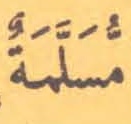 مُسَلَّمَةٌ